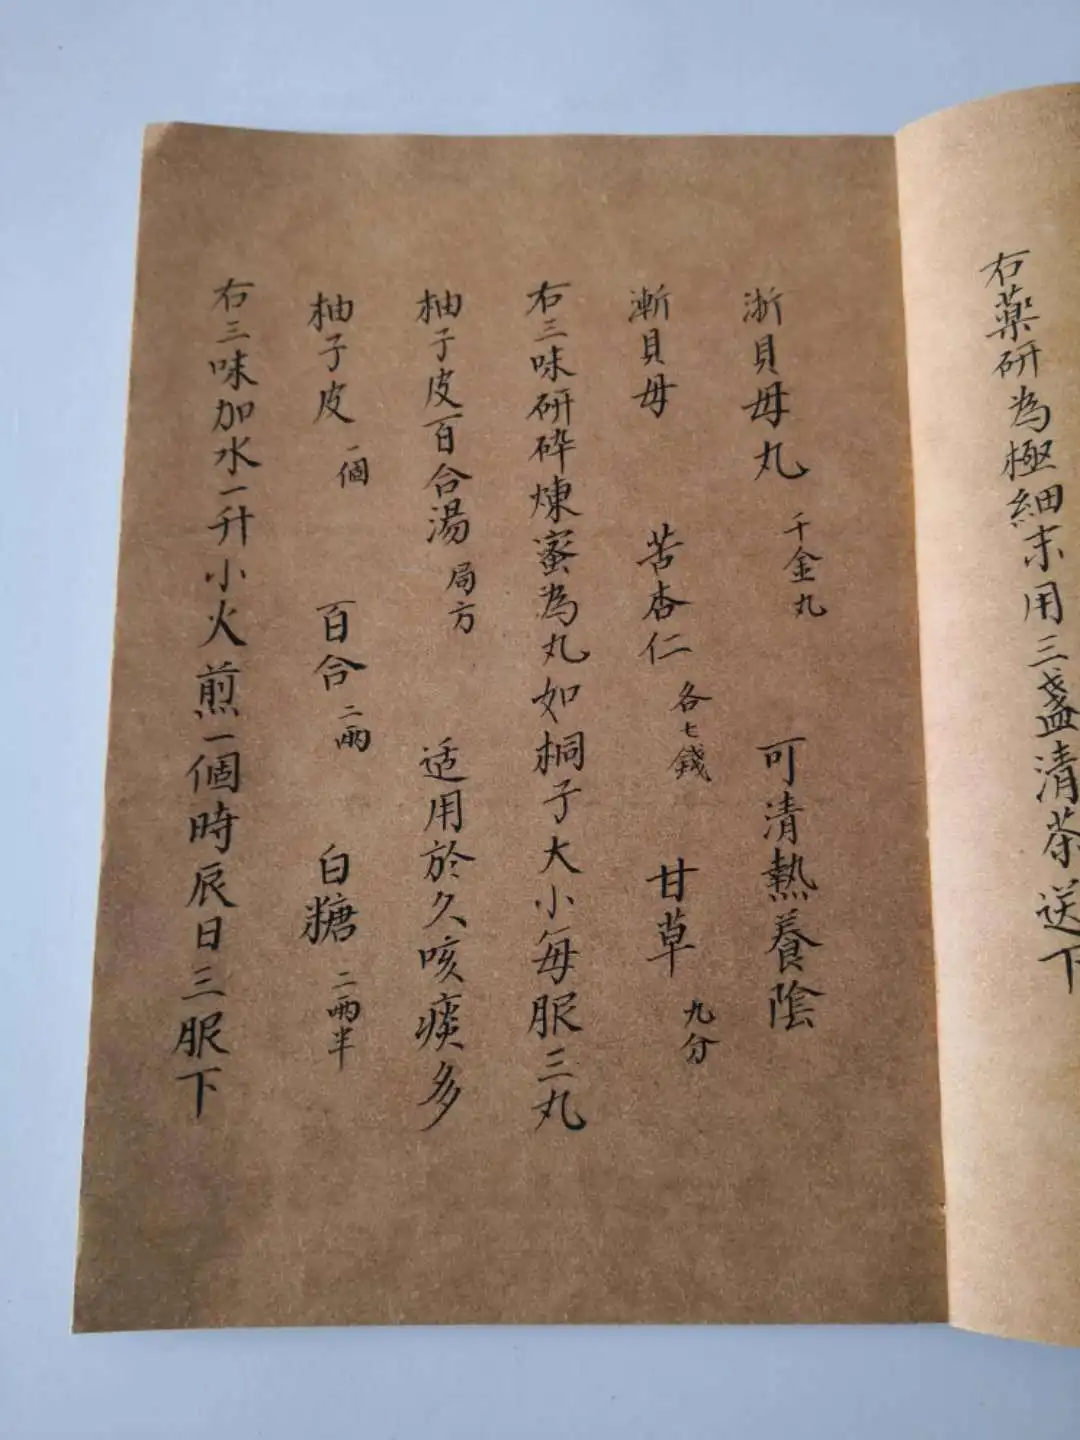 右藥研為極細末用三盞清茶送下
浙貝母丸 千金丸 可清熱養陰
漸貝母 苦杏仁 各七錢 甘草 九分
右三味研碎煉蜜為丸如桐子大小每服三丸
柚子皮百合湯 局方 适用於久咳痰多
柚子皮 一個 百合 二兩 白糖 二兩半
右三味加水一升小火煎一個時辰日三服下